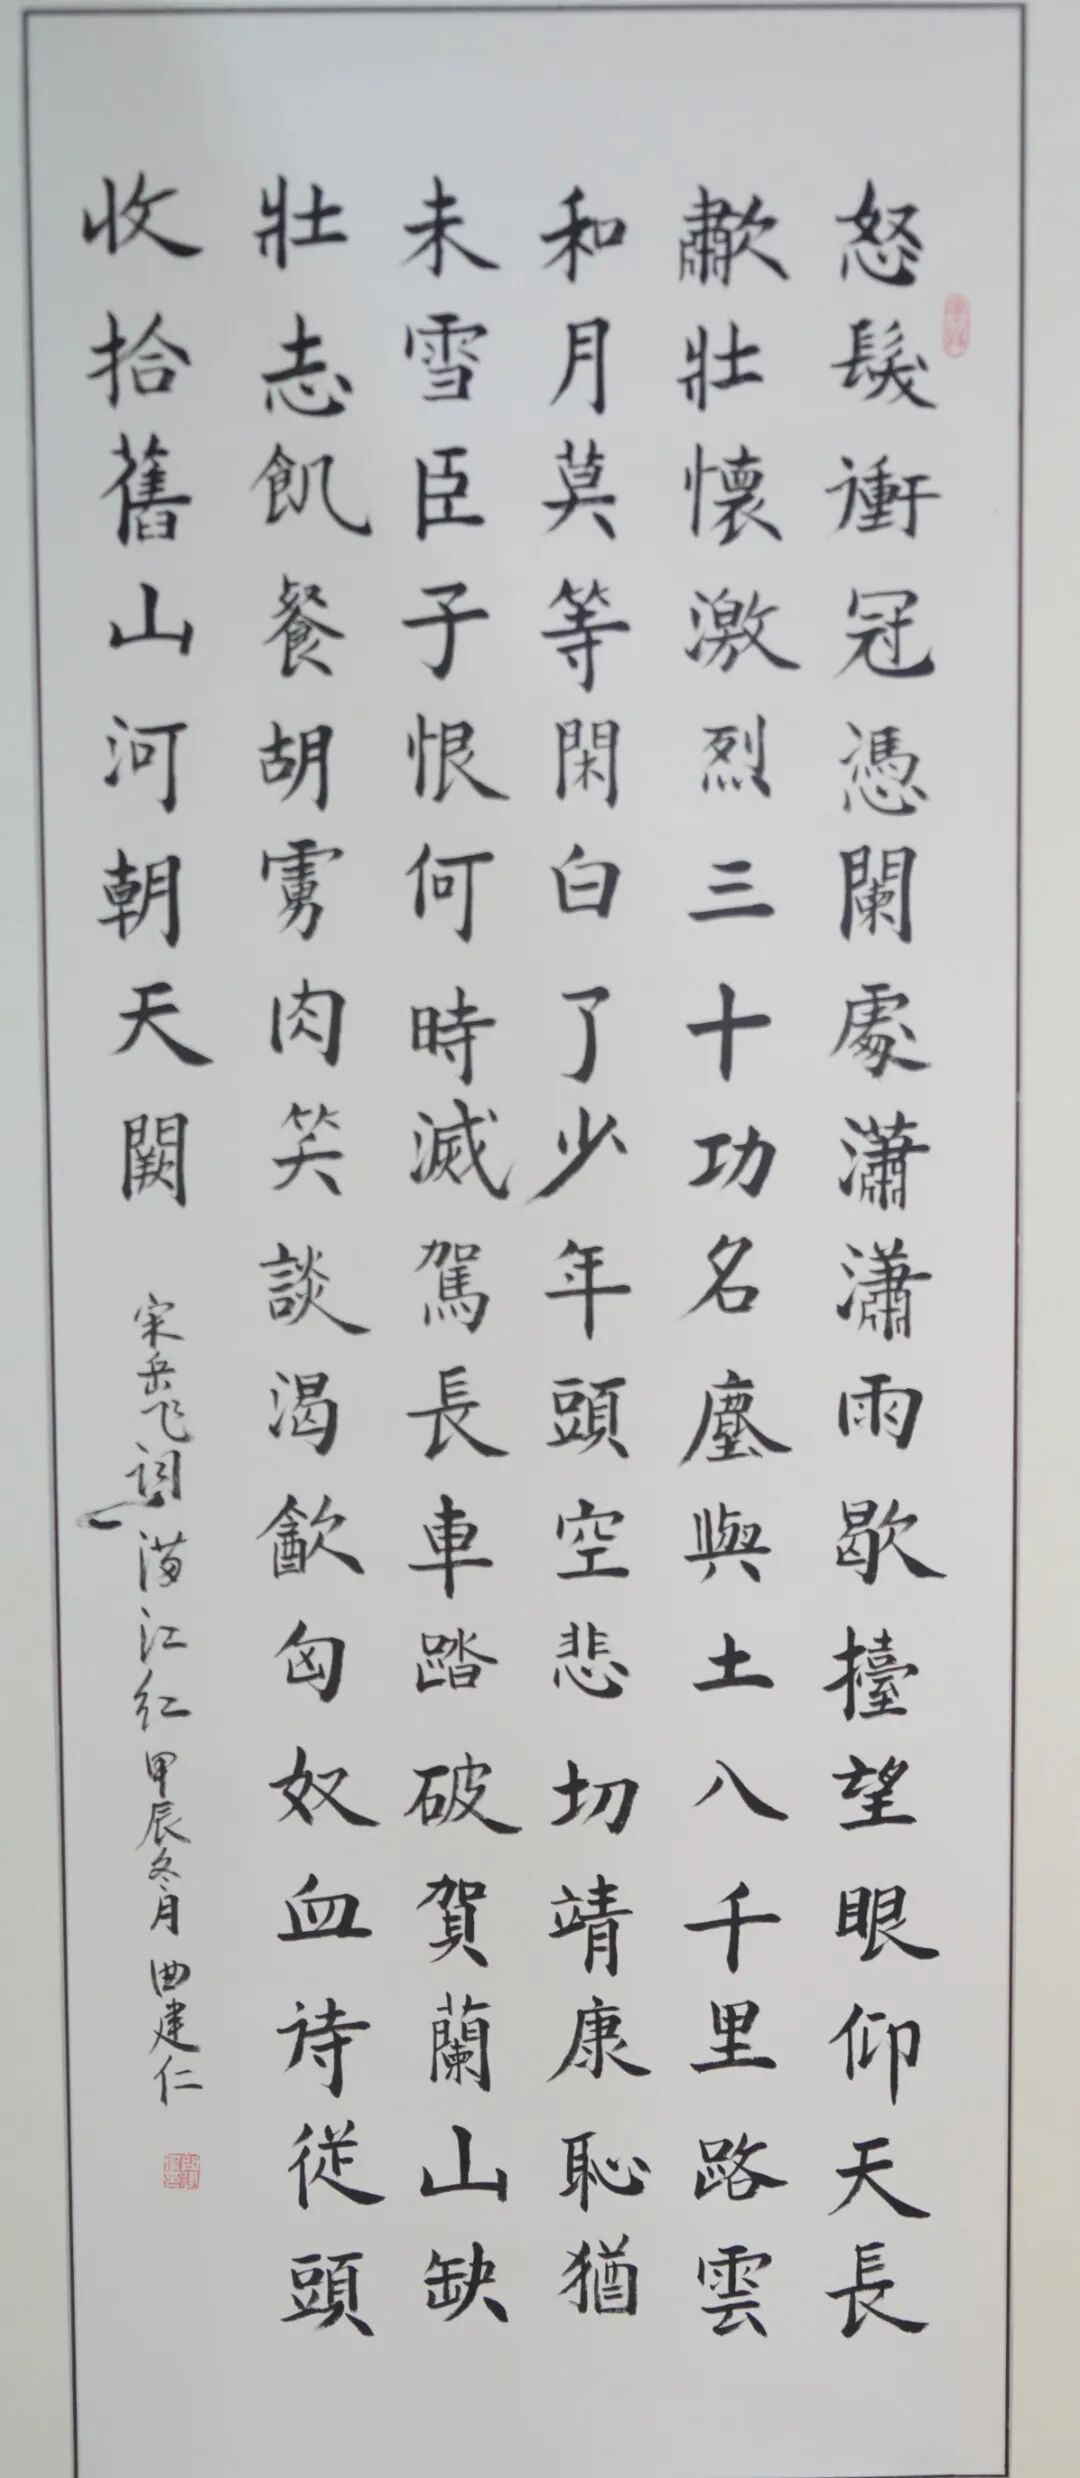 怒髮衝冠憑闌處瀟瀟雨歇擡望眼仰天長
歗壯懷激烈三十功名塵與土八千里路雲
和月莫等閑白了少年頭空悲切靖康恥猶
未雪臣子恨何時滅駕長車踏破賀蘭山缺
壯志飢餐胡雳肉笑談渴歠匈奴血诗從頭
收拾舊山河朝天闕
宋岳飞词满江红甲辰冬月曲建仁